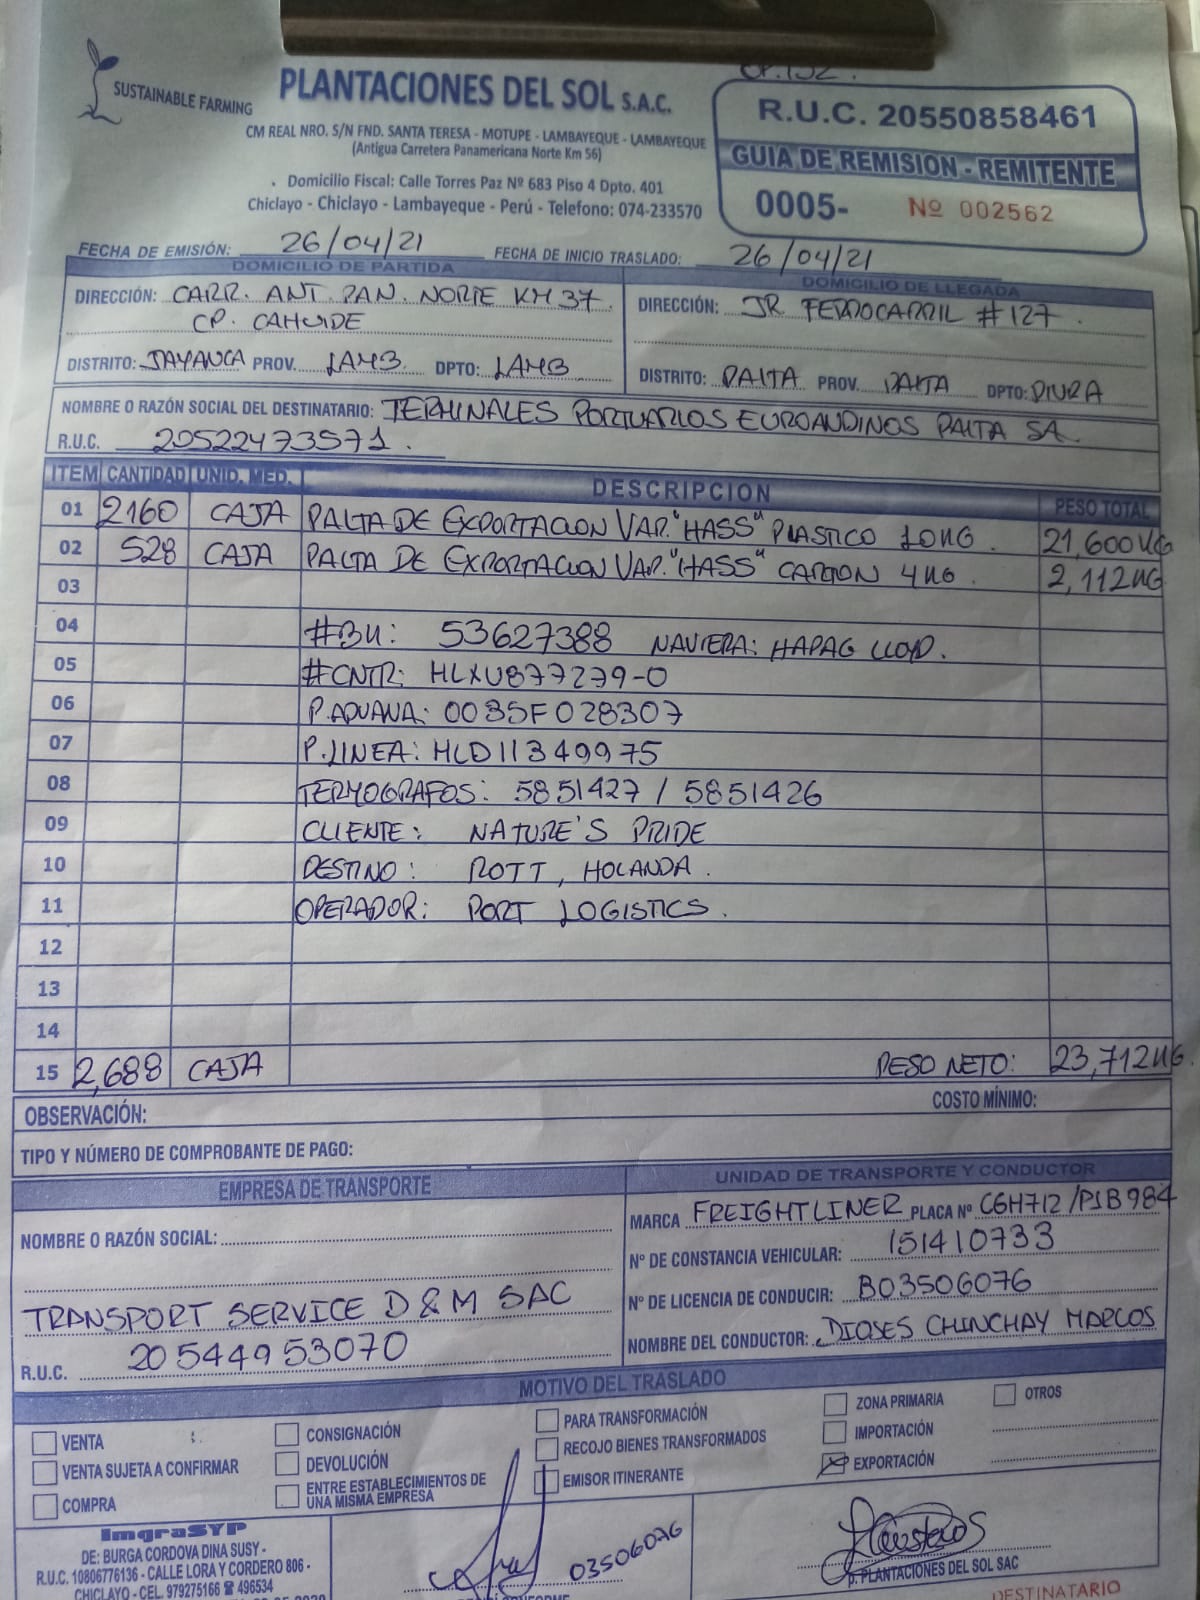 OP. 132.
SUSTAINABLE FARMING
PLANTACIONES DEL SOL S.A.C.
CM REAL NRO. S/N FND. SANTA TERESA - MOTUPE - LAMBAYEQUE - LAMBAYEQUE
(Antigua Carretera Panamericana Norte Km 56)
Domicilio Fiscal: Calle Torres Paz Nº 683 Piso 4 Dpto. 401
Chiclayo - Chiclayo - Lambayeque - Perú - Telefono: 074-233570
R.U.C. 20550858461
GUIA DE REMISION - REMITENTE
0005- Nº 002562
FECHA DE EMISIÓN: 26/04/21 FECHA DE INICIO TRASLADO: 26/04/21
DOMICILIO DE PARTIDA
DIRECCIÓN: CARR. ANT. PAN. NORTE KM 37
CP. CAHUIDE
DISTRITO: JAYANCA PROV. LAMB. DPTO: LAMB
DOMICILIO DE LLEGADA
DIRECCIÓN: JR FERROCARRIL #127.
DISTRITO: PAITA PROV. PAITA DPTO: PIURA
NOMBRE O RAZÓN SOCIAL DEL DESTINATARIO: TERMINALES PORTUARIOS EUROANDINOS PAITA SA.
R.U.C. 20522473571.
ITEM CANTIDAD UNID. MED. DESCRIPCION PESO TOTAL
01 2160 CAJA PALTA DE EXPORTACION VAR. "HASS" PLASTICO 10KG. 21,600KG
02 528 CAJA PALTA DE EXPORTACION VAR. "HASS" CARTON 4KG. 2,112KG
03
04 #BK: 53627388 NAVIERA: HAPAG LLOYD.
05 #CNTR: HLXU877279-0
06 P.ADUANA: 0035F028307
07 P.LINEA: HLD11349975
08 TERMOGRAFOS: 5851427 / 5851426
09 CLIENTE: NATURE'S PRIDE
10 DESTINO: ROTT, HOLANDA.
11 OPERADOR: PORT LOGISTICS.
12
13
14
15 2,688 CAJA PESO NETO: 23,712KG.
OBSERVACIÓN: COSTO MÍNIMO:
TIPO Y NÚMERO DE COMPROBANTE DE PAGO:
EMPRESA DE TRANSPORTE
NOMBRE O RAZÓN SOCIAL:
TRANSPORT SERVICE D & M SAC
R.U.C. 20544953070
UNIDAD DE TRANSPORTE Y CONDUCTOR
MARCA FREIGHTLINER PLACA Nº C6H712/P1B984
Nº DE CONSTANCIA VEHICULAR: 151410733
Nº DE LICENCIA DE CONDUCIR: B03506076
NOMBRE DEL CONDUCTOR: DIOSES CHINCHAY MARCOS
MOTIVO DEL TRASLADO
VENTA
VENTA SUJETA A CONFIRMAR
COMPRA
CONSIGNACIÓN
DEVOLUCIÓN
ENTRE ESTABLECIMIENTOS DE
UNA MISMA EMPRESA
PARA TRANSFORMACIÓN
RECOJO BIENES TRANSFORMADOS
EMISOR ITINERANTE
ZONA PRIMARIA
IMPORTACIÓN
EXPORTACIÓN
OTROS
ImgraSYP
DE: BURGA CORDOVA DINA SUSY -
R.U.C. 10806776136 - CALLE LORA Y CORDERO 806 -
CHICLAYO - CEL. 979275166 ☎ 496534
03506076
p. PLANTACIONES DEL SOL SAC
DESTINATARIO